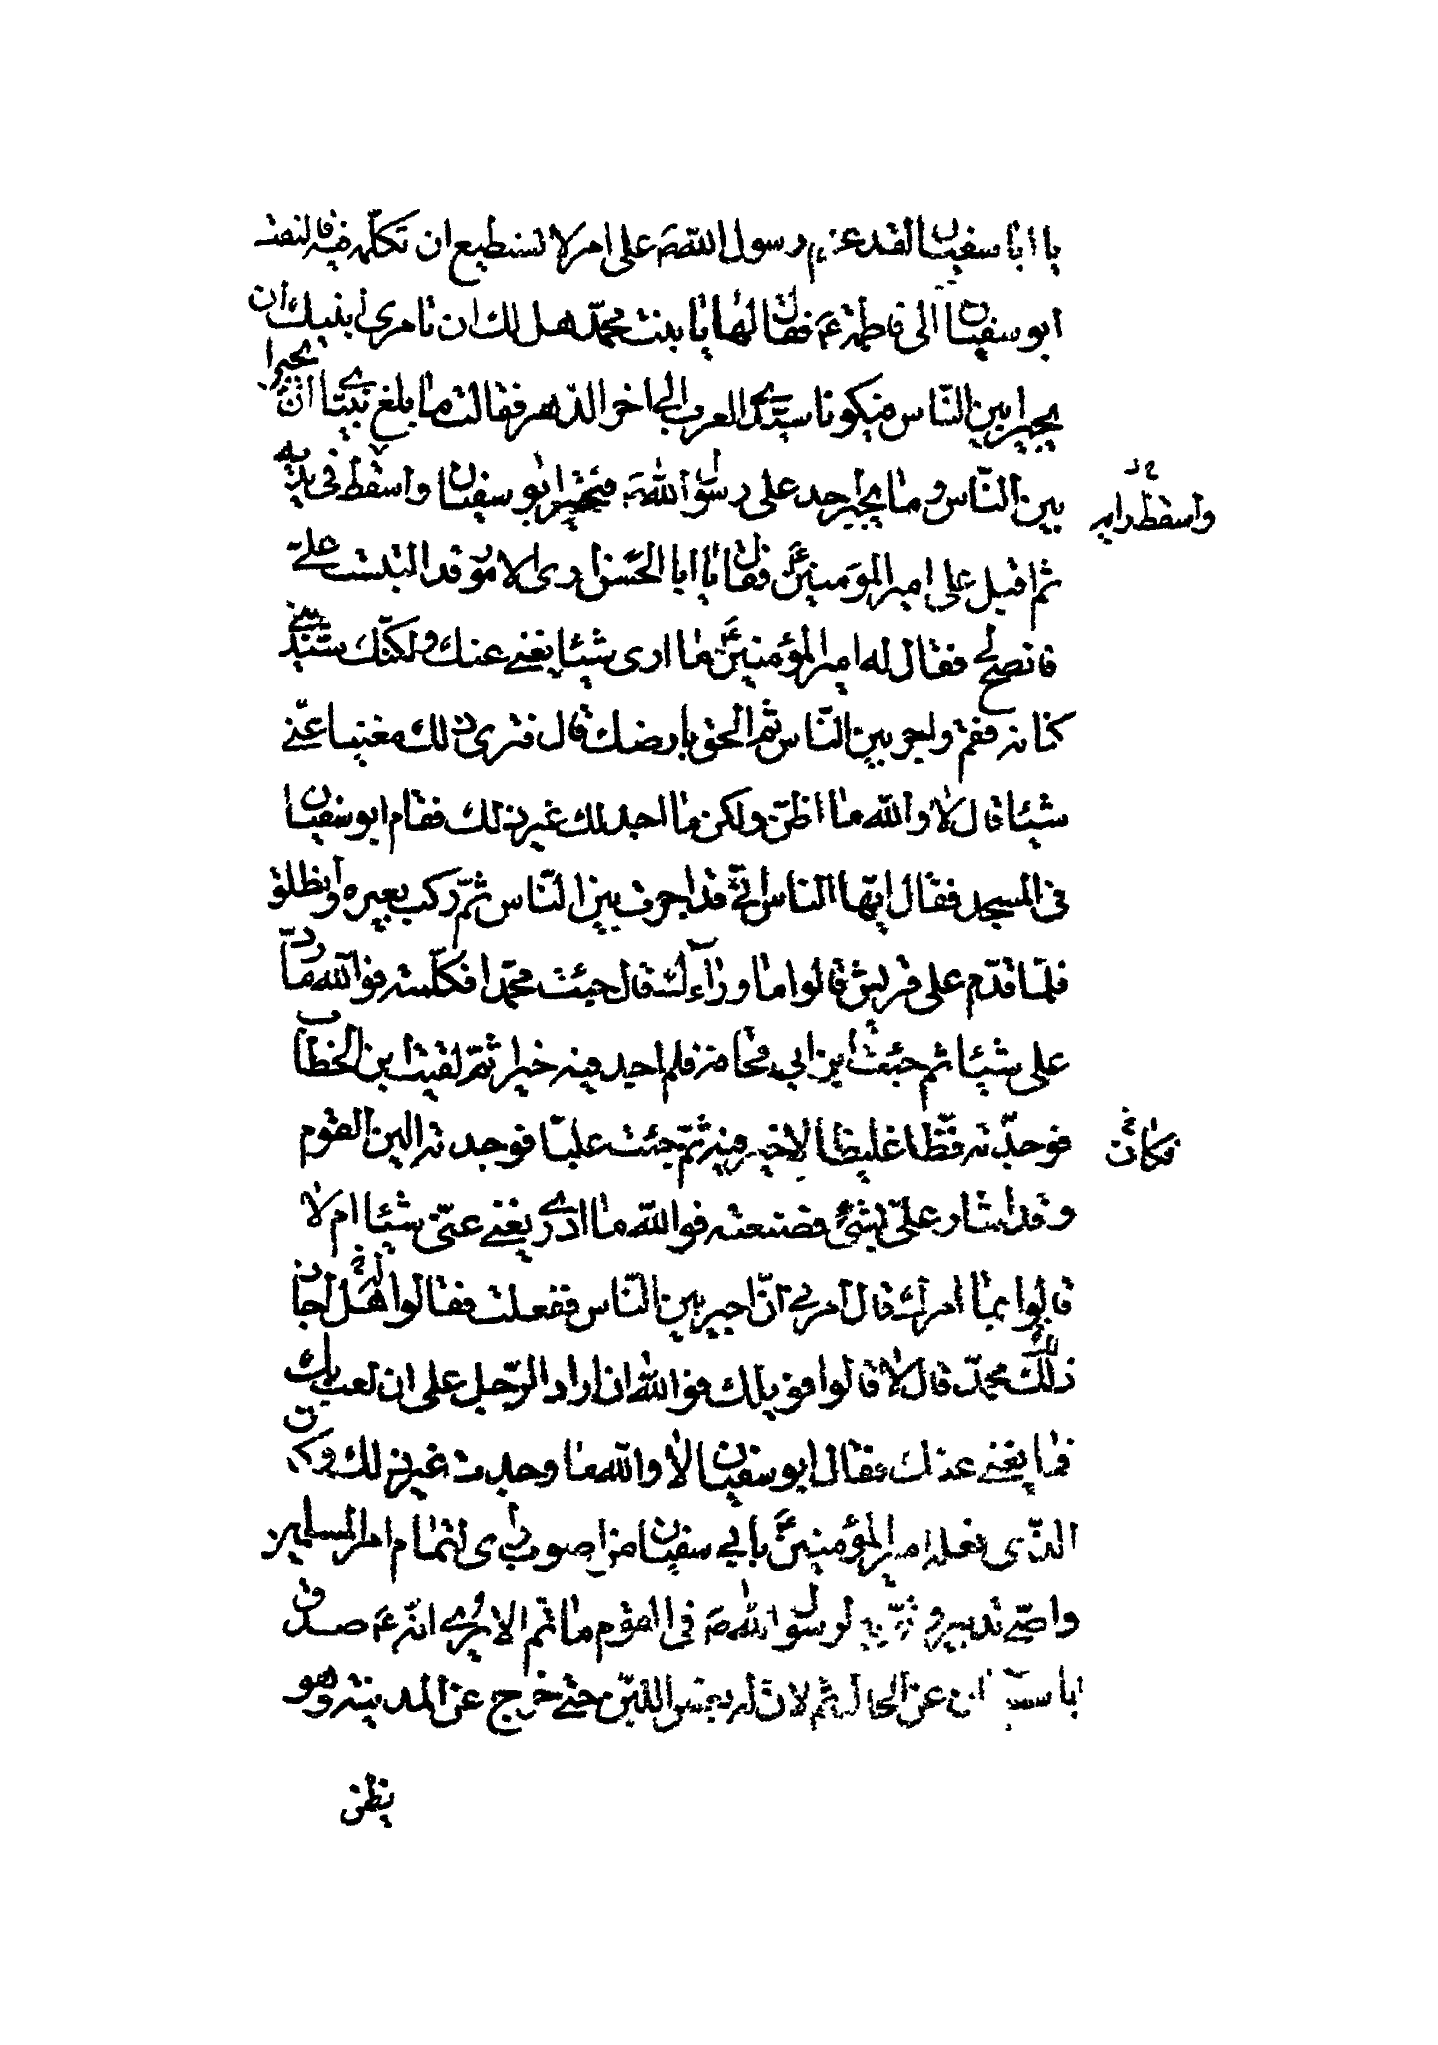 يا ابا سفيان لقد عزم رسول اللهص على امر لا نستطيع ان نكلّمه فيه فالتفت
ابو سفيان الى فاطمةع فقال لها يا بنت محمّد هل لك ان تامرى ابنيك ان
يجيرا بين النّاس فيكونا سيّدى العرب الى اخر الدّهر فقالت ما بلغ نبيّا ان يجيرا
بين النّاس وما يجير احد على رسول اللهص فتحيّر ابو سفيان واسقط فى يديه
واسقط رايه
ثم اقبل على امير المؤمنينع فقال يا ابا الحسن ارى الامور قد التبست علىّ
فانصح لى فقال له امير المؤمنينع ما ارى شيئا يغنى عنك ولكنّك سيّد بنى
كنانة فقم واجر بين النّاس ثم الحق بارضك قال فترى ذلك مغنيا عنّى
شيئا قال لا والله ما اظنّ ولكن ما اجد لك غير ذلك فقام ابو سفيان
فى المسجد فقال ايّها الناس انّى قد اجرت بين النّاس ثمّ ركب بعيره وانطلق
فلمّا قدم على قريش قالوا ما ورآءك قال جئت محمّدا فكلّمته فوالله ما ردّ
على شيئا ثم جئت ابن ابى قحافة فلم اجد فيه خيرا ثمّ لقيت ابن الخطّاب
فوجدته فظّا غليظا لا خير فيه ثمّ جئت عليّا فوجدته الين القوم
فكان
وقد اشار علىّ بشىء فصنعته فوالله ما ادرى يغنى عنّى شيئا ام لا
قالوا بما امرك قال امرنى ان اجير بين النّاس ففعلت فقالوا له هل اجاز
ذلك محمّد قال لا قالوا فويلك فوالله ان زاد الرّجل على ان لعب بك
فما يغنى عنك فقال ابو سفيان لا والله ما وجدت غير ذلك وكان
الذّى فعله امير المؤمنينع بابى سفيان من اصوب راى لتمام امر المسلمين
واصحّ تدبير و لرسول اللهص فى القوم ما تم الا يرى انّهع صدق
ابا سفيان عن الحال ثم لان له بعض اللّين حتّى خرج عن المدينة وهو
يظن